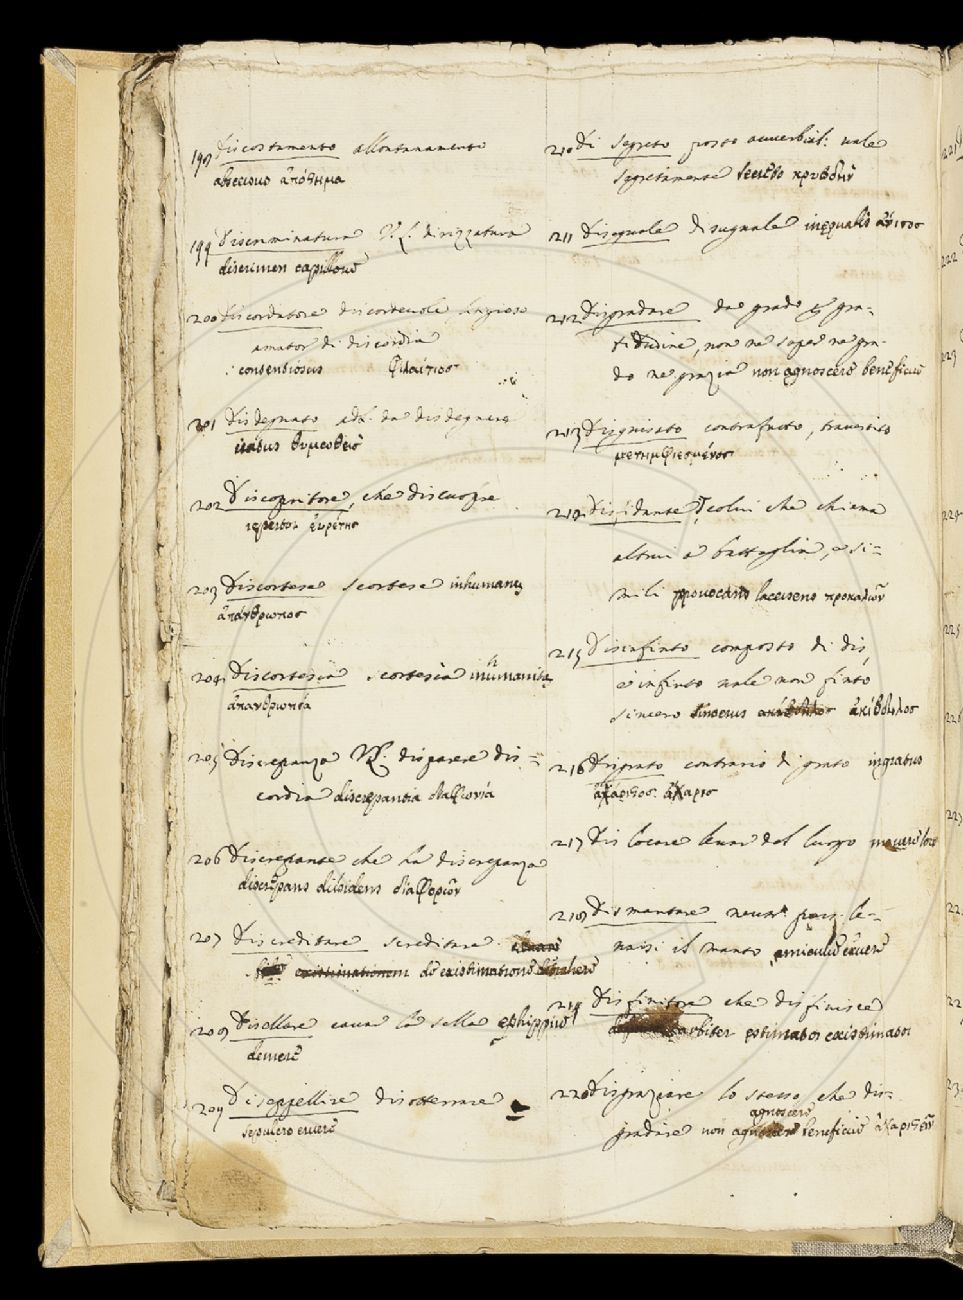 198 discostamento allontanamento
abscessus ἀπόστημα
199 Discriminatura V.L. dirizzatura
discrimen capillorū
200 discordatore discordevole
amator di discordia
contentiosus φιλαίτιος
201 disdegnato ad. da disdegnare
iratus θυμωθεὶς
202 discopritore, che discuopre
repertor εὑρέτης
203 discortese scortese inhumanus
ἀπάνθρωπος
204 discortesia scortesia inhumanitas
ἀπανθρωπία
205 Discrepanza V.L. disparere dis=
cordia discrepantia διαφωνία
206 discrepante che ha discrepanza
discrepans dissidens διαφορῶν
207 discreditare screditare
existimationem de existimatione detrahere
208 disellare cavar la sella ephippiū
demere
209 diseppellire disotterrare
sepulcro eruere
210 di segreto posto avverbial: vale
segretamente secreto κρύβδην
211 diseguale disuguale inequalis ἄνισος
212 disgradare da grado per gra-
titudine, non ne saper ne gra-
do ne grazia non agnoscere beneficiū
213 disguisato contrafatto, travestito
μετημφιεσμένος
214 disfidante colui che chiama
altrui a battaglia, e si=
mili provocans lacessens προκαλῶν
215 disinfinto composto di dis,
e infinto vale non finto
sincero sincerus ἀκίβδηλος ἀκίβδηλος
216 disgrato contrario di grato ingratus
ἀχάριστος ἄχαρις
217 dis locare levar dal luogo movere loco
218 dismantare neutr. pass. le-
varsi il manto amiculū exuere
219 disfinitore che disfinisce
arbiter estimator existimator
220 disgraziare lo stesso che dis-
agnoscere
gradire non agnoscere beneficiū ἀχαριστεῖν